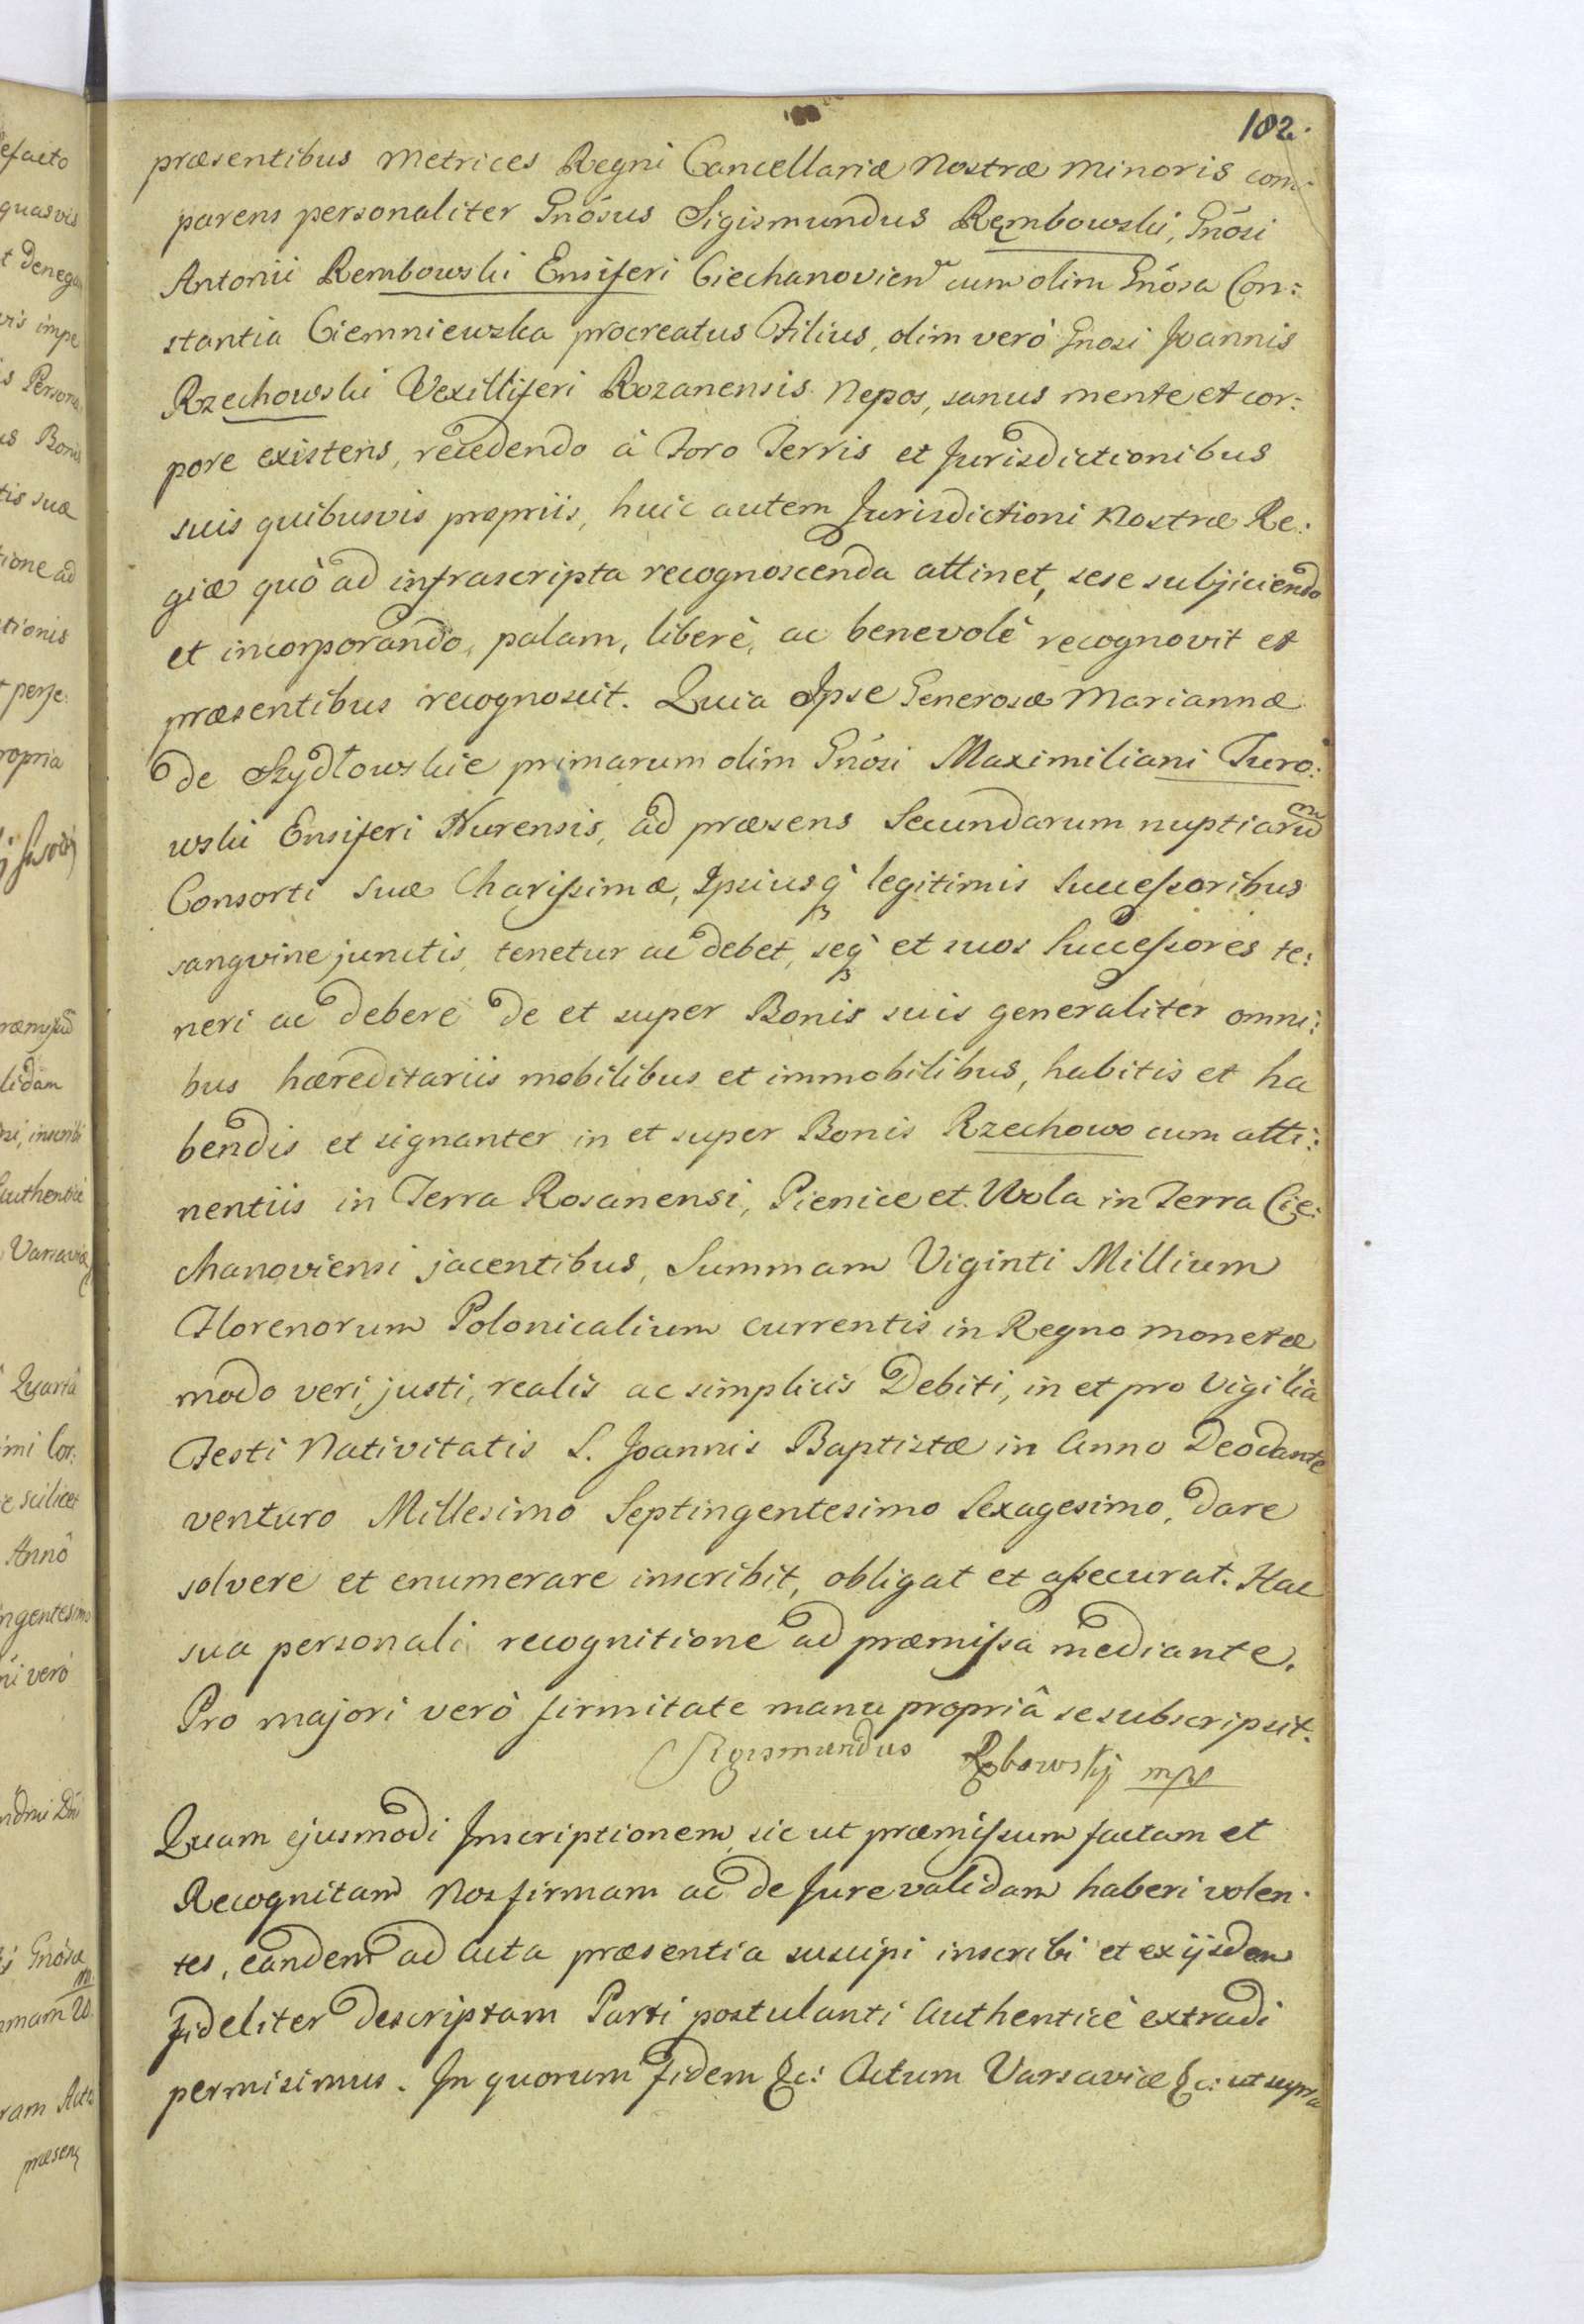 102.
præsentibus Metrices Regni Cancellariæ Nostræ Minoris com:
parens personaliter Gnõsus Sigismundus Rembowski, Gnõsi
Antonii Rembowski Ensiferi Ciechanovien cum olim Gnõsa Con:
stantia Ciemniewska procreatus Filius, olim verò Gnosi Joannis
Rzechowski Vexilliferi Rozanensis Nepos, sanus mente et cor:
pore existens, recedendo à Foro Terris et Jurisdictionibus
suis quibusvis propriis, huic autem Jurisdictioni Nostræ Re:
giæ quò ad infrascripta recognoscenda attinet, sese subjiciendo
et incorporando, palam, liberè, ac benevolè recognovit et
præsentibus recognoscit. Quia Ipse Generosæ Mariannæ
de Szydłowskie primarum olim Gnõsi Maximiliani Turo:
wski Ensiferi Nurensis, ad præsens Secundarum nuptiarum
Consorti Suæ Charissimæ, Ipsiusq legitimis Successoribus
sangvine junctis, tenetur ac debet, seq et suos Successores te:
neri ac debere de et super Bonis suis generaliter omni:
bus hæreditariis mobilibus et immobilibus, habitis et ha
bendis et signanter in et super Bonis Rzechowo cum atti:
nentiis in Terra Rosanensi, Pienice et Wola in Terra Cie:
chanoviensi jacentibus, Summam Viginti Millium
Florenorum Polonicalium currentis in Regno monetæ
modo veri, justi, realis ac simplicis Debiti, in et pro Vigilia
Festi Nativitatis S. Joannis Baptistæ in Anno Deo dante
venturo Millesimo Septingentesimo Sexagesimo, dare
solvere et enumerare inscribit, obligat et assecurat. Hac
sua personali recognitione ad præmissa mediante.
Pro majori verò firmitate manu propriâ se subscripsit.
Sigismundus Rębowskj mpp
Quam ejusmodi Inscriptionem, sic ut præmissum factam et
Recognitam Nos firmam ac de Jure validam haberi volen:
tes, eandem ad Acta præsentia suscipi inscribi et ex ijsdem
fideliter descriptam Parti postulanti Authenticè extradi
permisimus. In quorum fidem &c: Actum Varsaviæ &c: ut supra